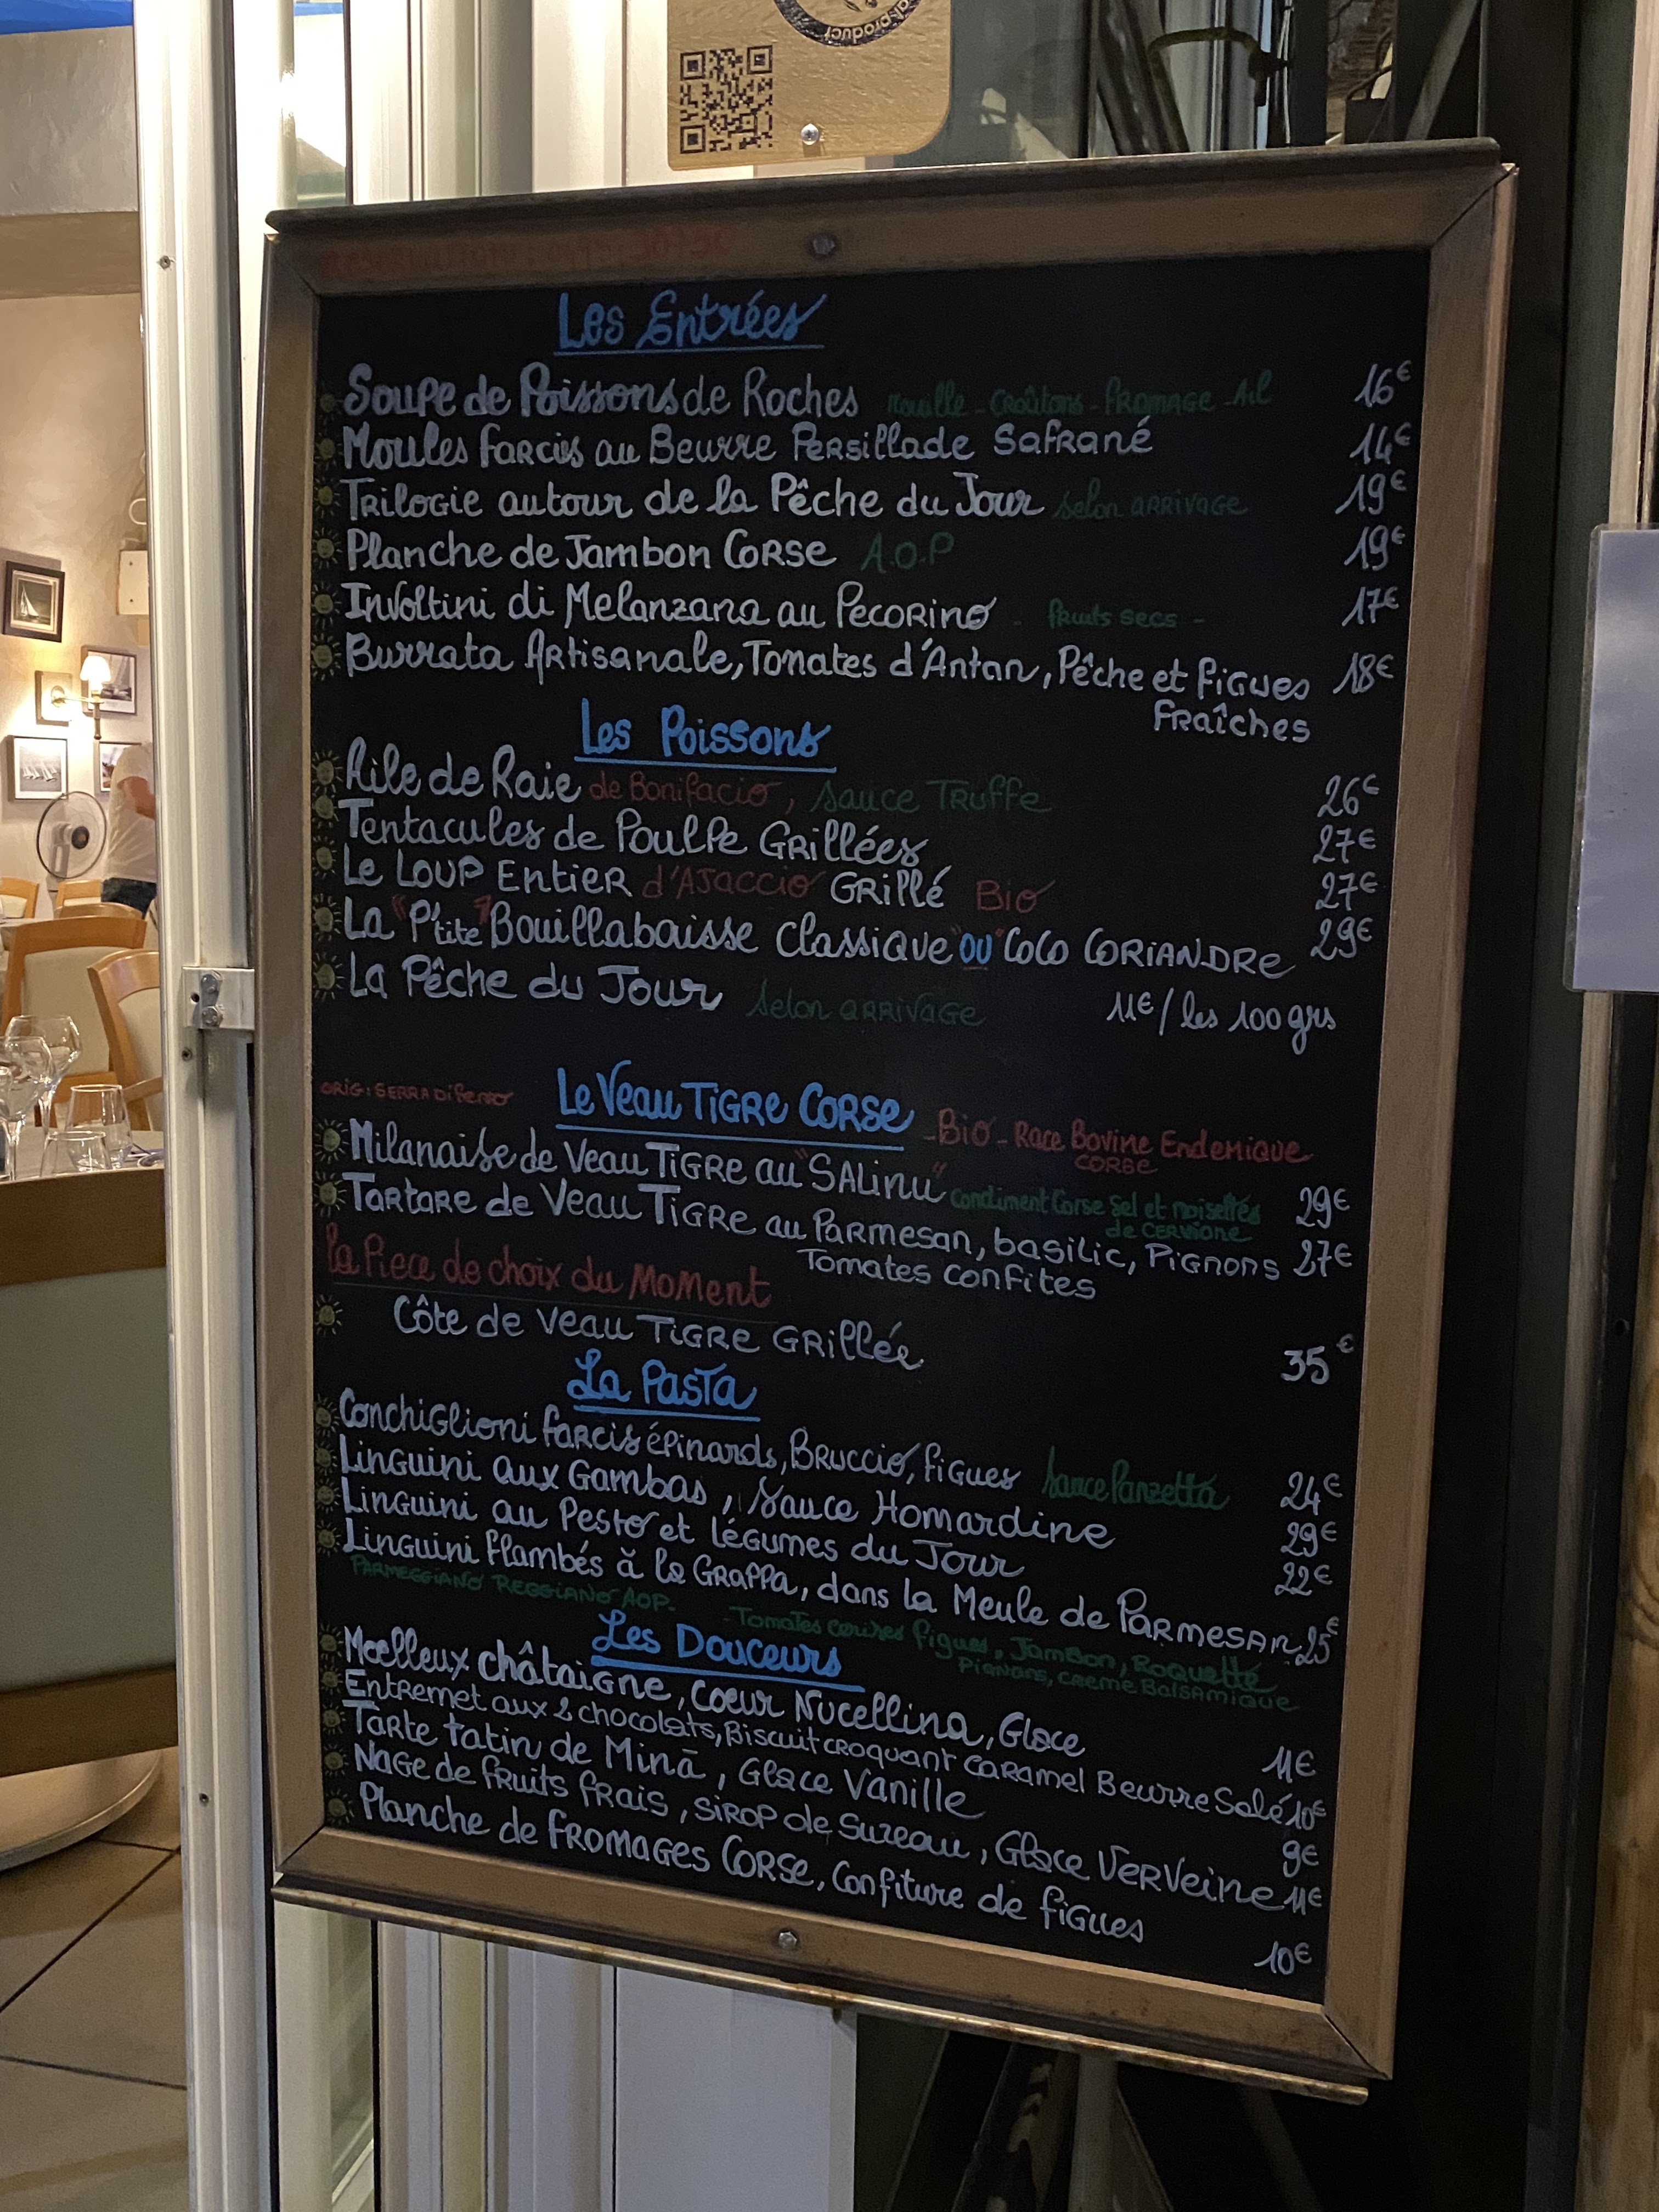 Les Entrées
Soupe de Poissons de Roches Rouille - Croûtons - Fromage - Ail 16€
Moules farcies au Beurre Persillade Safrané 14€
Trilogie autour de la Pêche du Jour selon arrivage 19€
Planche de Jambon Corse A.O.P 19€
Involtini di Melanzana au Pecorino - fruits secs - 17€
Burrata Artisanale, Tomates d'Antan, Pêche et figues 18€
fraîches
Les Poissons
Aile de Raie de Bonifacio, Sauce Truffe 26€
Tentacules de Poulpe Grillées 27€
Le Loup Entier d'Ajaccio Grillé Bio 27€
La "P'tite" Bouillabaisse classique "ou" Coco Coriandre 29€
La Pêche du Jour Selon arrivage 11€/ les 100grs
Orig: Serra Di
Le Veau Tigre Corse - Bio - Race Bovine Endemique
Corse
Milanaise de Veau Tigre au "Salinu" Condiment Corse Sel et noisettes 29€
de Cervione
Tartare de Veau Tigre au Parmesan, basilic, Pignons 27€
Tomates confites
la Piece de choix du Moment
Côte de Veau Tigre Grillée 35€
La Pasta
Conchiglioni farcis épinards, Bruccio, figues Sauce Panzetta 24€
Linguini aux Gambas, Sauce Homardine 29€
Linguini au Pesto et légumes du Jour 22€
Linguini flambés à la Grappa, dans la Meule de Parmesan 25€
Parmeggiano Reggiano AOP - - Tomates cerises figues, Jambon, Roquette
Pignons, creme Balsamique
Les Douceurs
Moelleux châtaigne, coeur Nucellina, Glace 11€
Entremet aux 2 chocolats, Biscuit croquant Caramel Beurre Salé 10€
Tarte tatin de Minà, Glace Vanille 9€
Nage de fruits frais, sirop de Suzeau, Glace Verveine 11€
Planche de Fromages Corse, Confiture de figues 10€